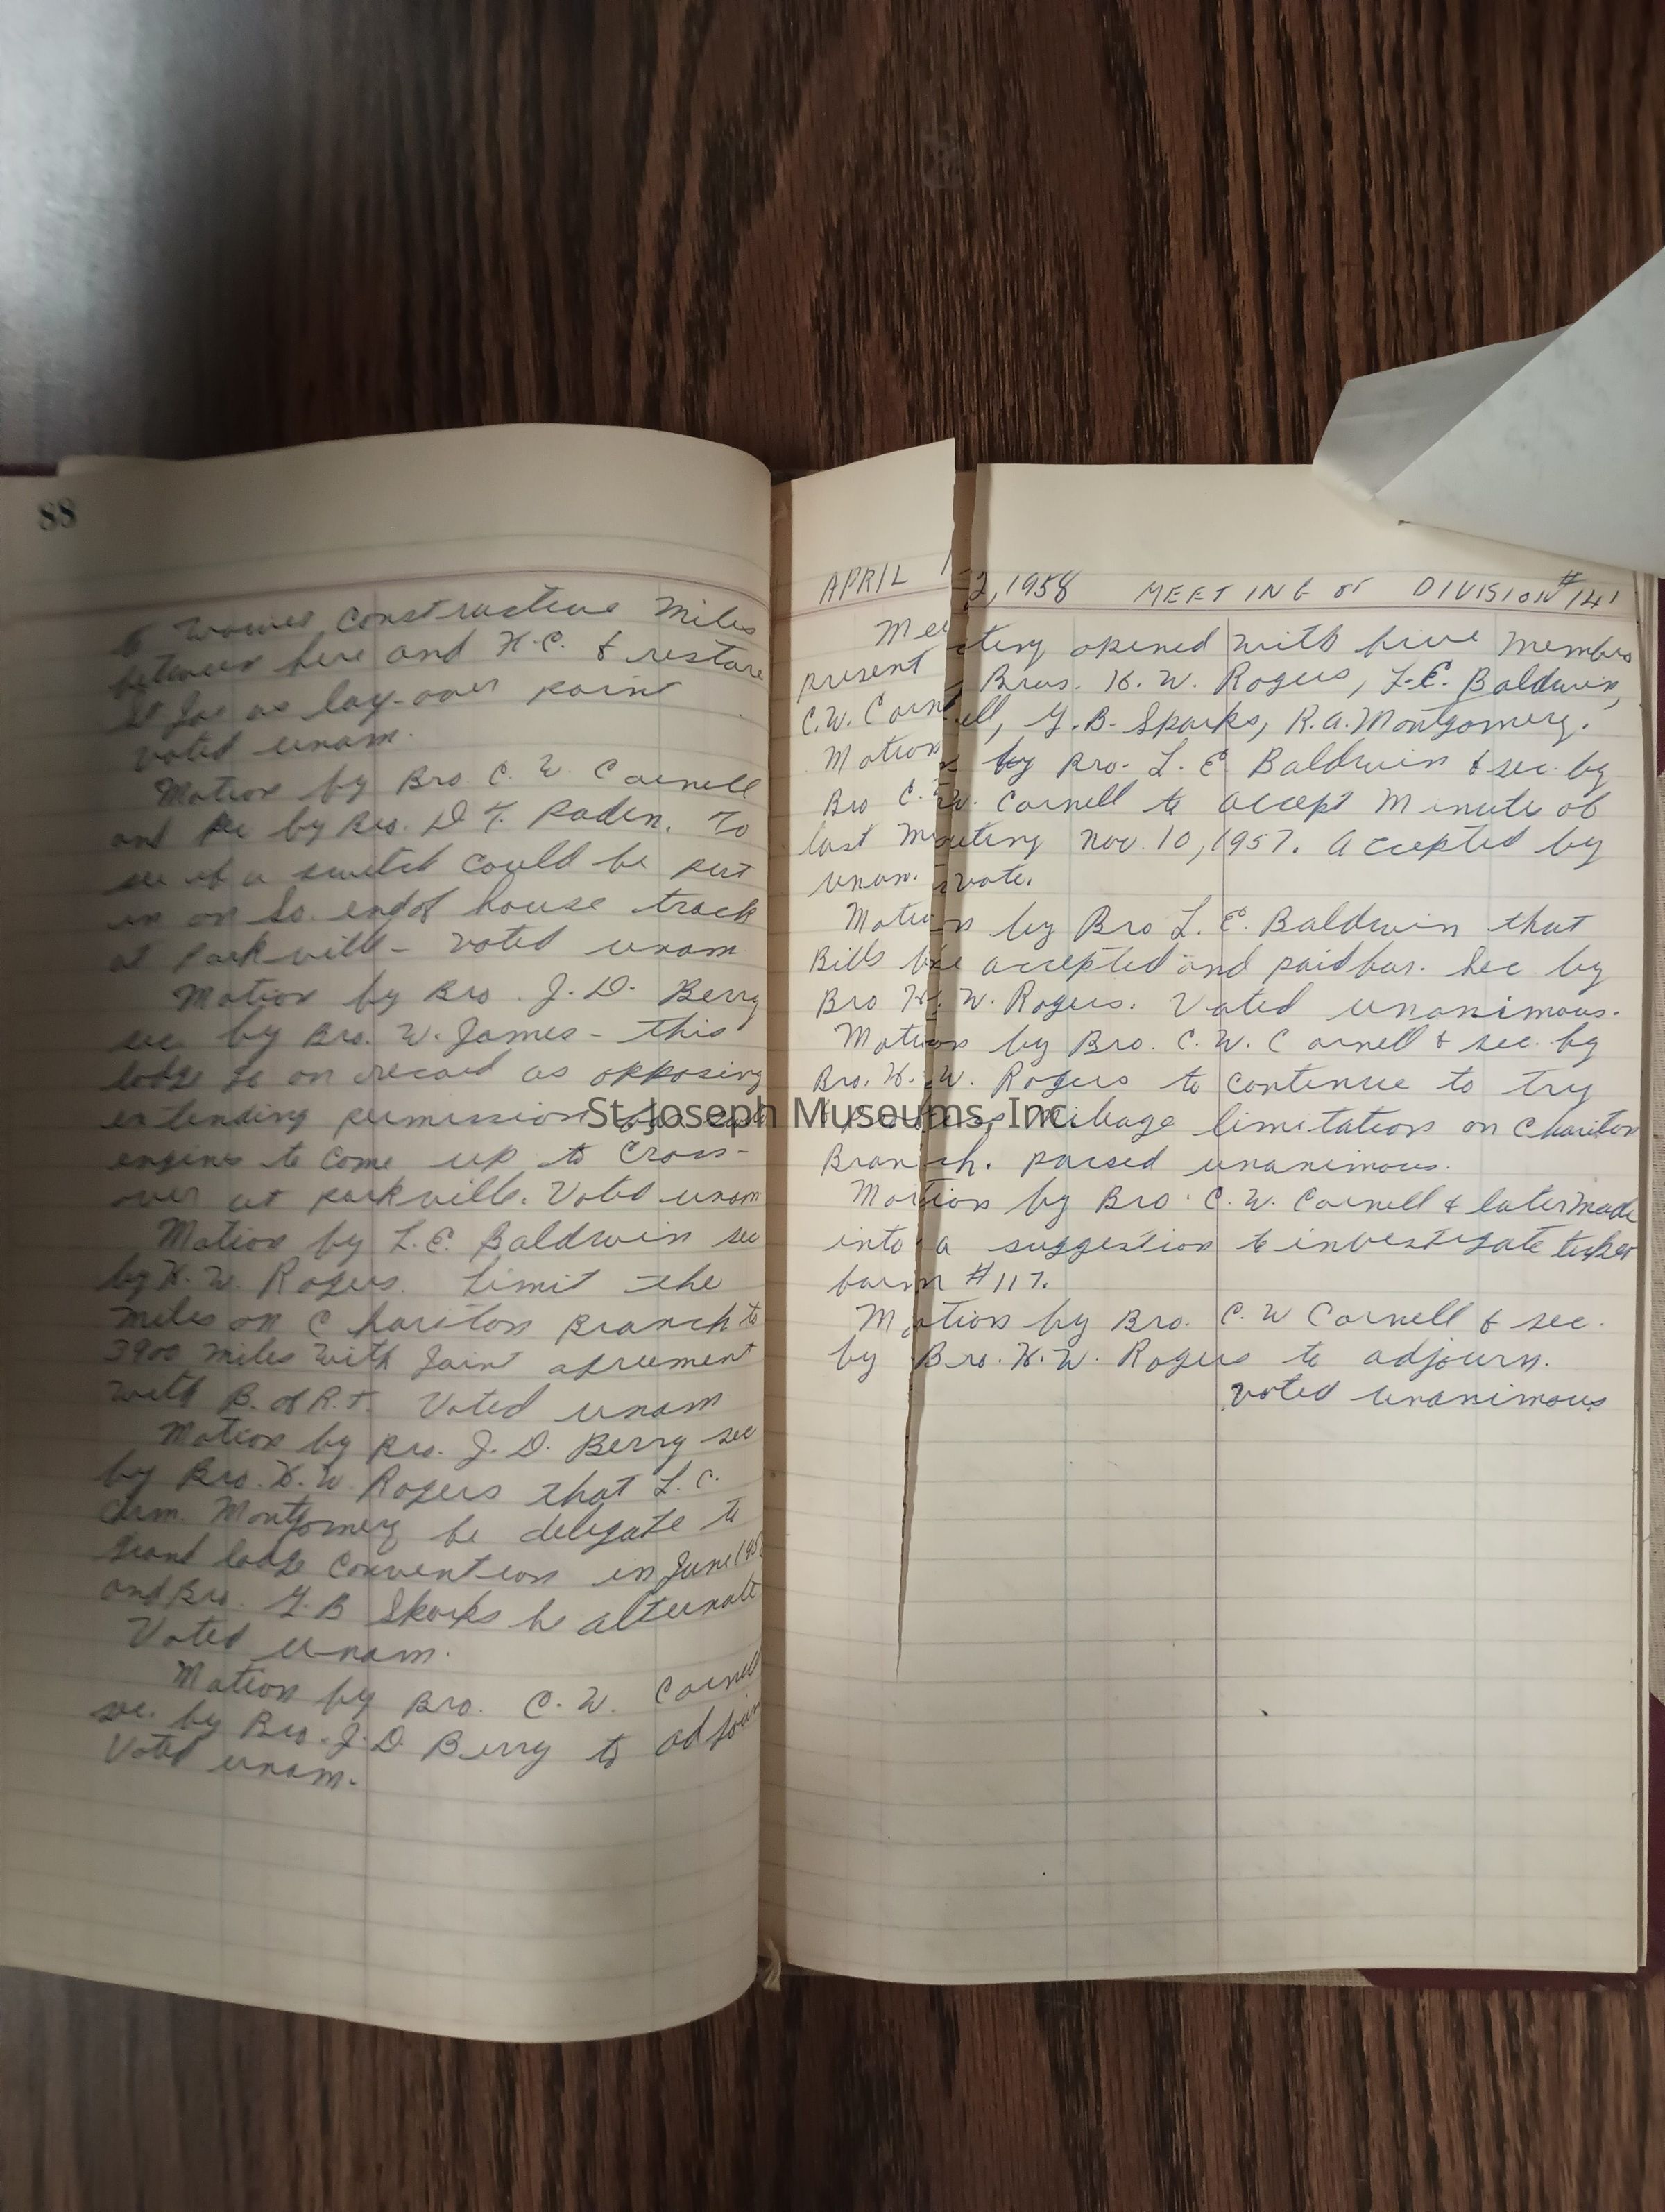 88
to waives constructive miles
between here and K.C. & restore
St Joe as lay-over point
voted unam.
Motion by Bro. C. W. Cornell
and sec by Bro. D. F. Paden. To
see if a switch could be put
in on So. end of house track
at Parkville - voted unam
Motion by Bro. J. D. Berry
sec by Bro. W. James - this
lodge go on record as opposing
extending permission
engines to come up to Cross-
over at parkville. Voted unam
Motion by L. E. Baldwin sec
by K. W. Rogers. limit the
miles on Chariton Branch to
3900 miles with Joint agreement
with B. of R.T. Voted unam
Motion by Bro. J. D. Berry sec
by Bro. K. W. Rogers that L. C.
Montgomery be delegate to
Grand lodge convention in June 195
and Bro. G. B Sparks be alternate
Voted unam.
Motion by Bro. C. W. Cornell
sec. by Bro. J. D. Berry to adjourn
Voted unam.
APRIL 12, 1958 MEETING OF DIVISION #141
Meeting opened with five members
present, Bros. K. W. Rogers, L.E. Baldwin,
C.W. Cornell, G. B. Sparks, R. A. Montgomery.
Motion by Bro. L. E. Baldwin & sec. by
Bro C. W. Cornell to accept Minute of
last meeting Nov. 10, 1957. Accepted by
unan. vote.
Motion by Bro L. E. Baldwin that
Bills be accepted and paid for. Sec by
Bro K. W. Rogers. Voted unanimous.
Motion by Bro. C. W. Cornell & sec. by
Bro. K. W. Rogers to continue to try
mileage limitation on Chariton
Branch. passed unanimous.
Motion by Bro. C. W. Cornell & later made
into a suggestion to investigate
form #117.
Motion by Bro. C. W Cornell & sec.
by Bro. K. W. Rogers to adjourn.
voted unanimous
St. Joseph Museums, Inc.